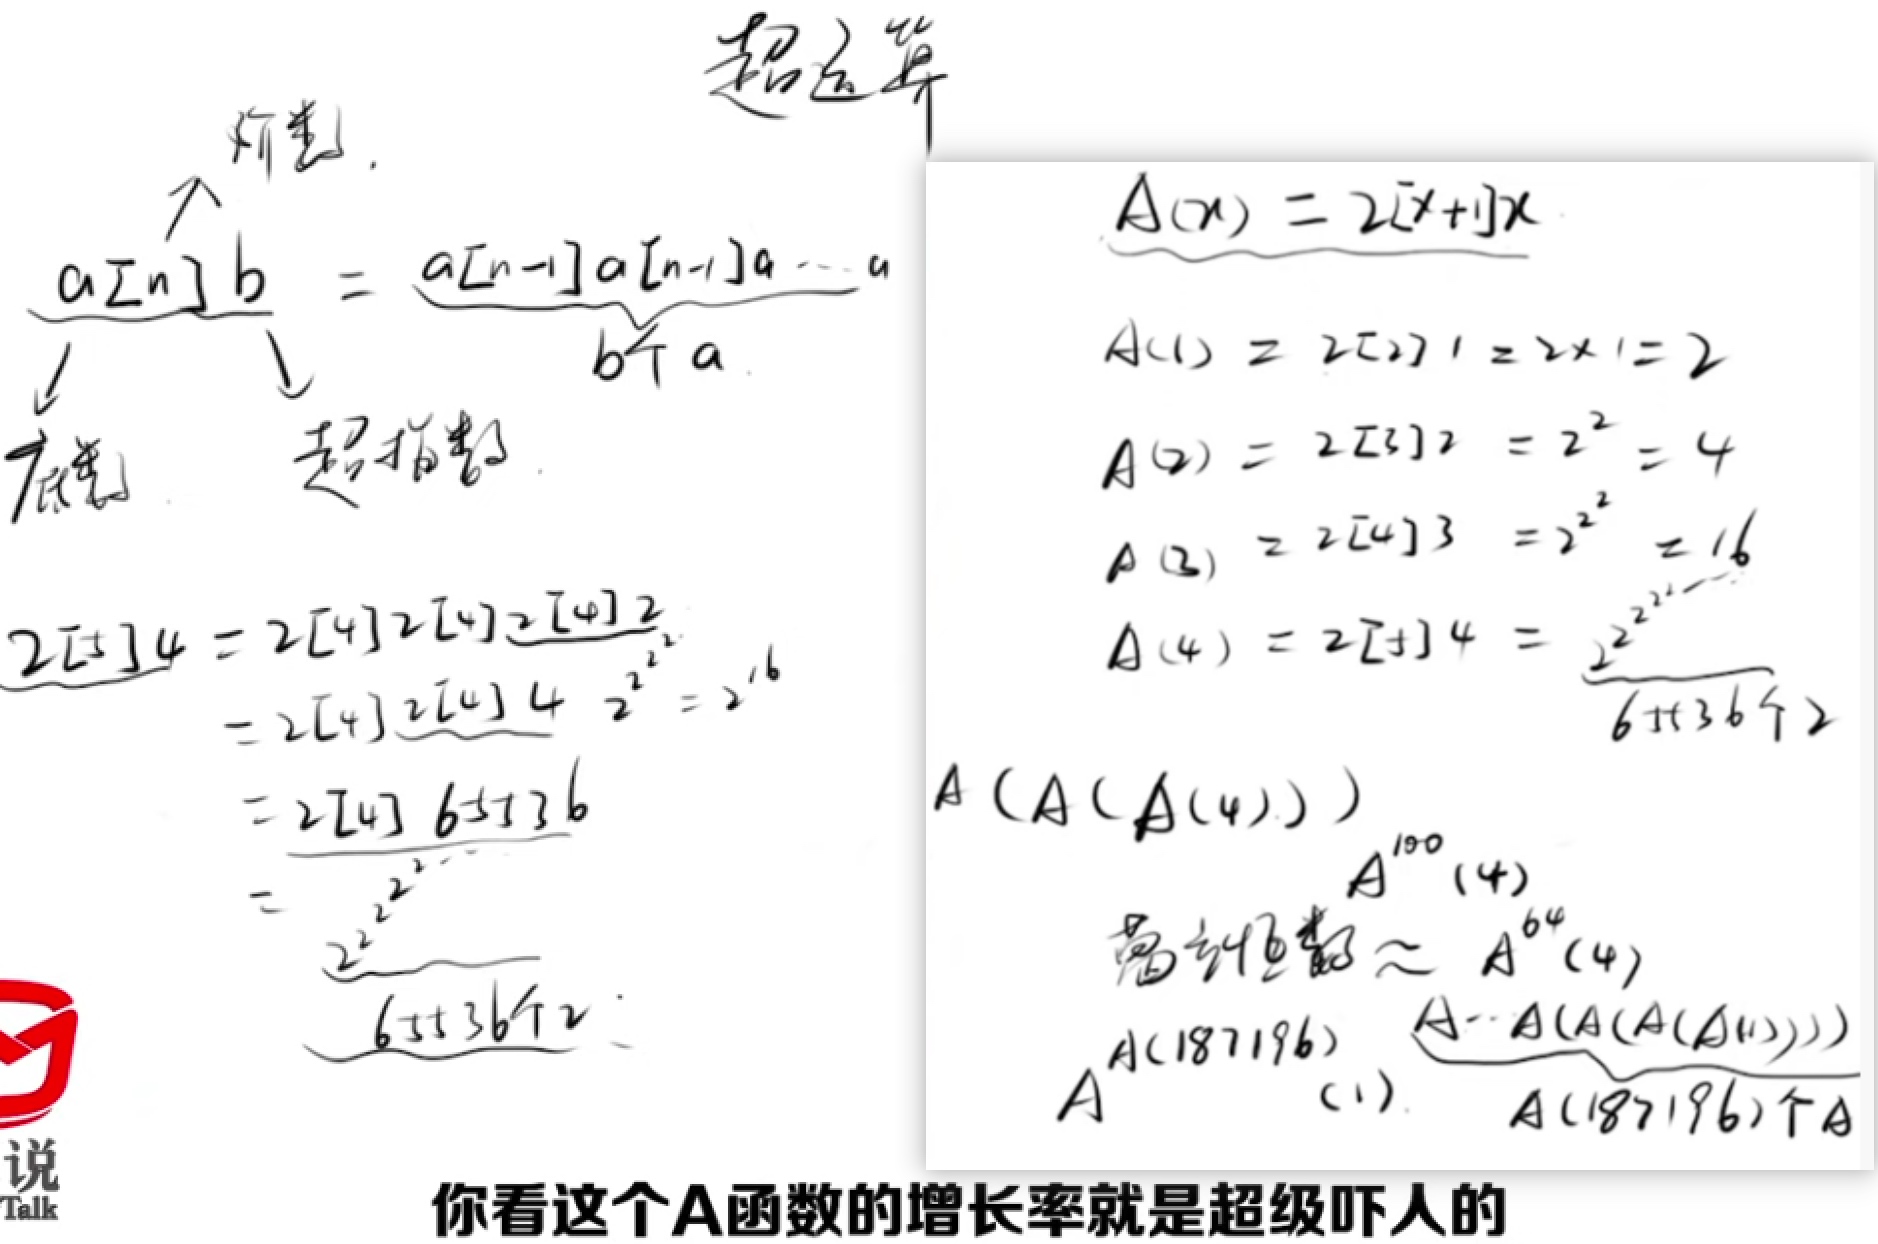 超运算
阶数
a[n]b = a[n-1]a[n-1]a…a
b个a
底数 超指数
2[5]4 = 2[4]2[4]2[4]2
= 2[4]2[4]4 2^2^2^2 = 2^16
= 2[4] 65536
= 2^2^2^2^2^…
65536个2
A(x) = 2[x+1]x
A(1) = 2[2]1 = 2×1 = 2
A(2) = 2[3]2 = 2^2 = 4
A(3) = 2[4]3 = 2^2^2 = 16
A(4) = 2[5]4 = 2^2^2^2^2^…
65536个2
A(A(A(4)))
A^100(4)
葛立恒数 ~ A^64(4)
A^A(187196)(1) A…A(A(A(A(1))))
A(187196)个A
说
Talk
你看这个A函数的增长率就是超级吓人的